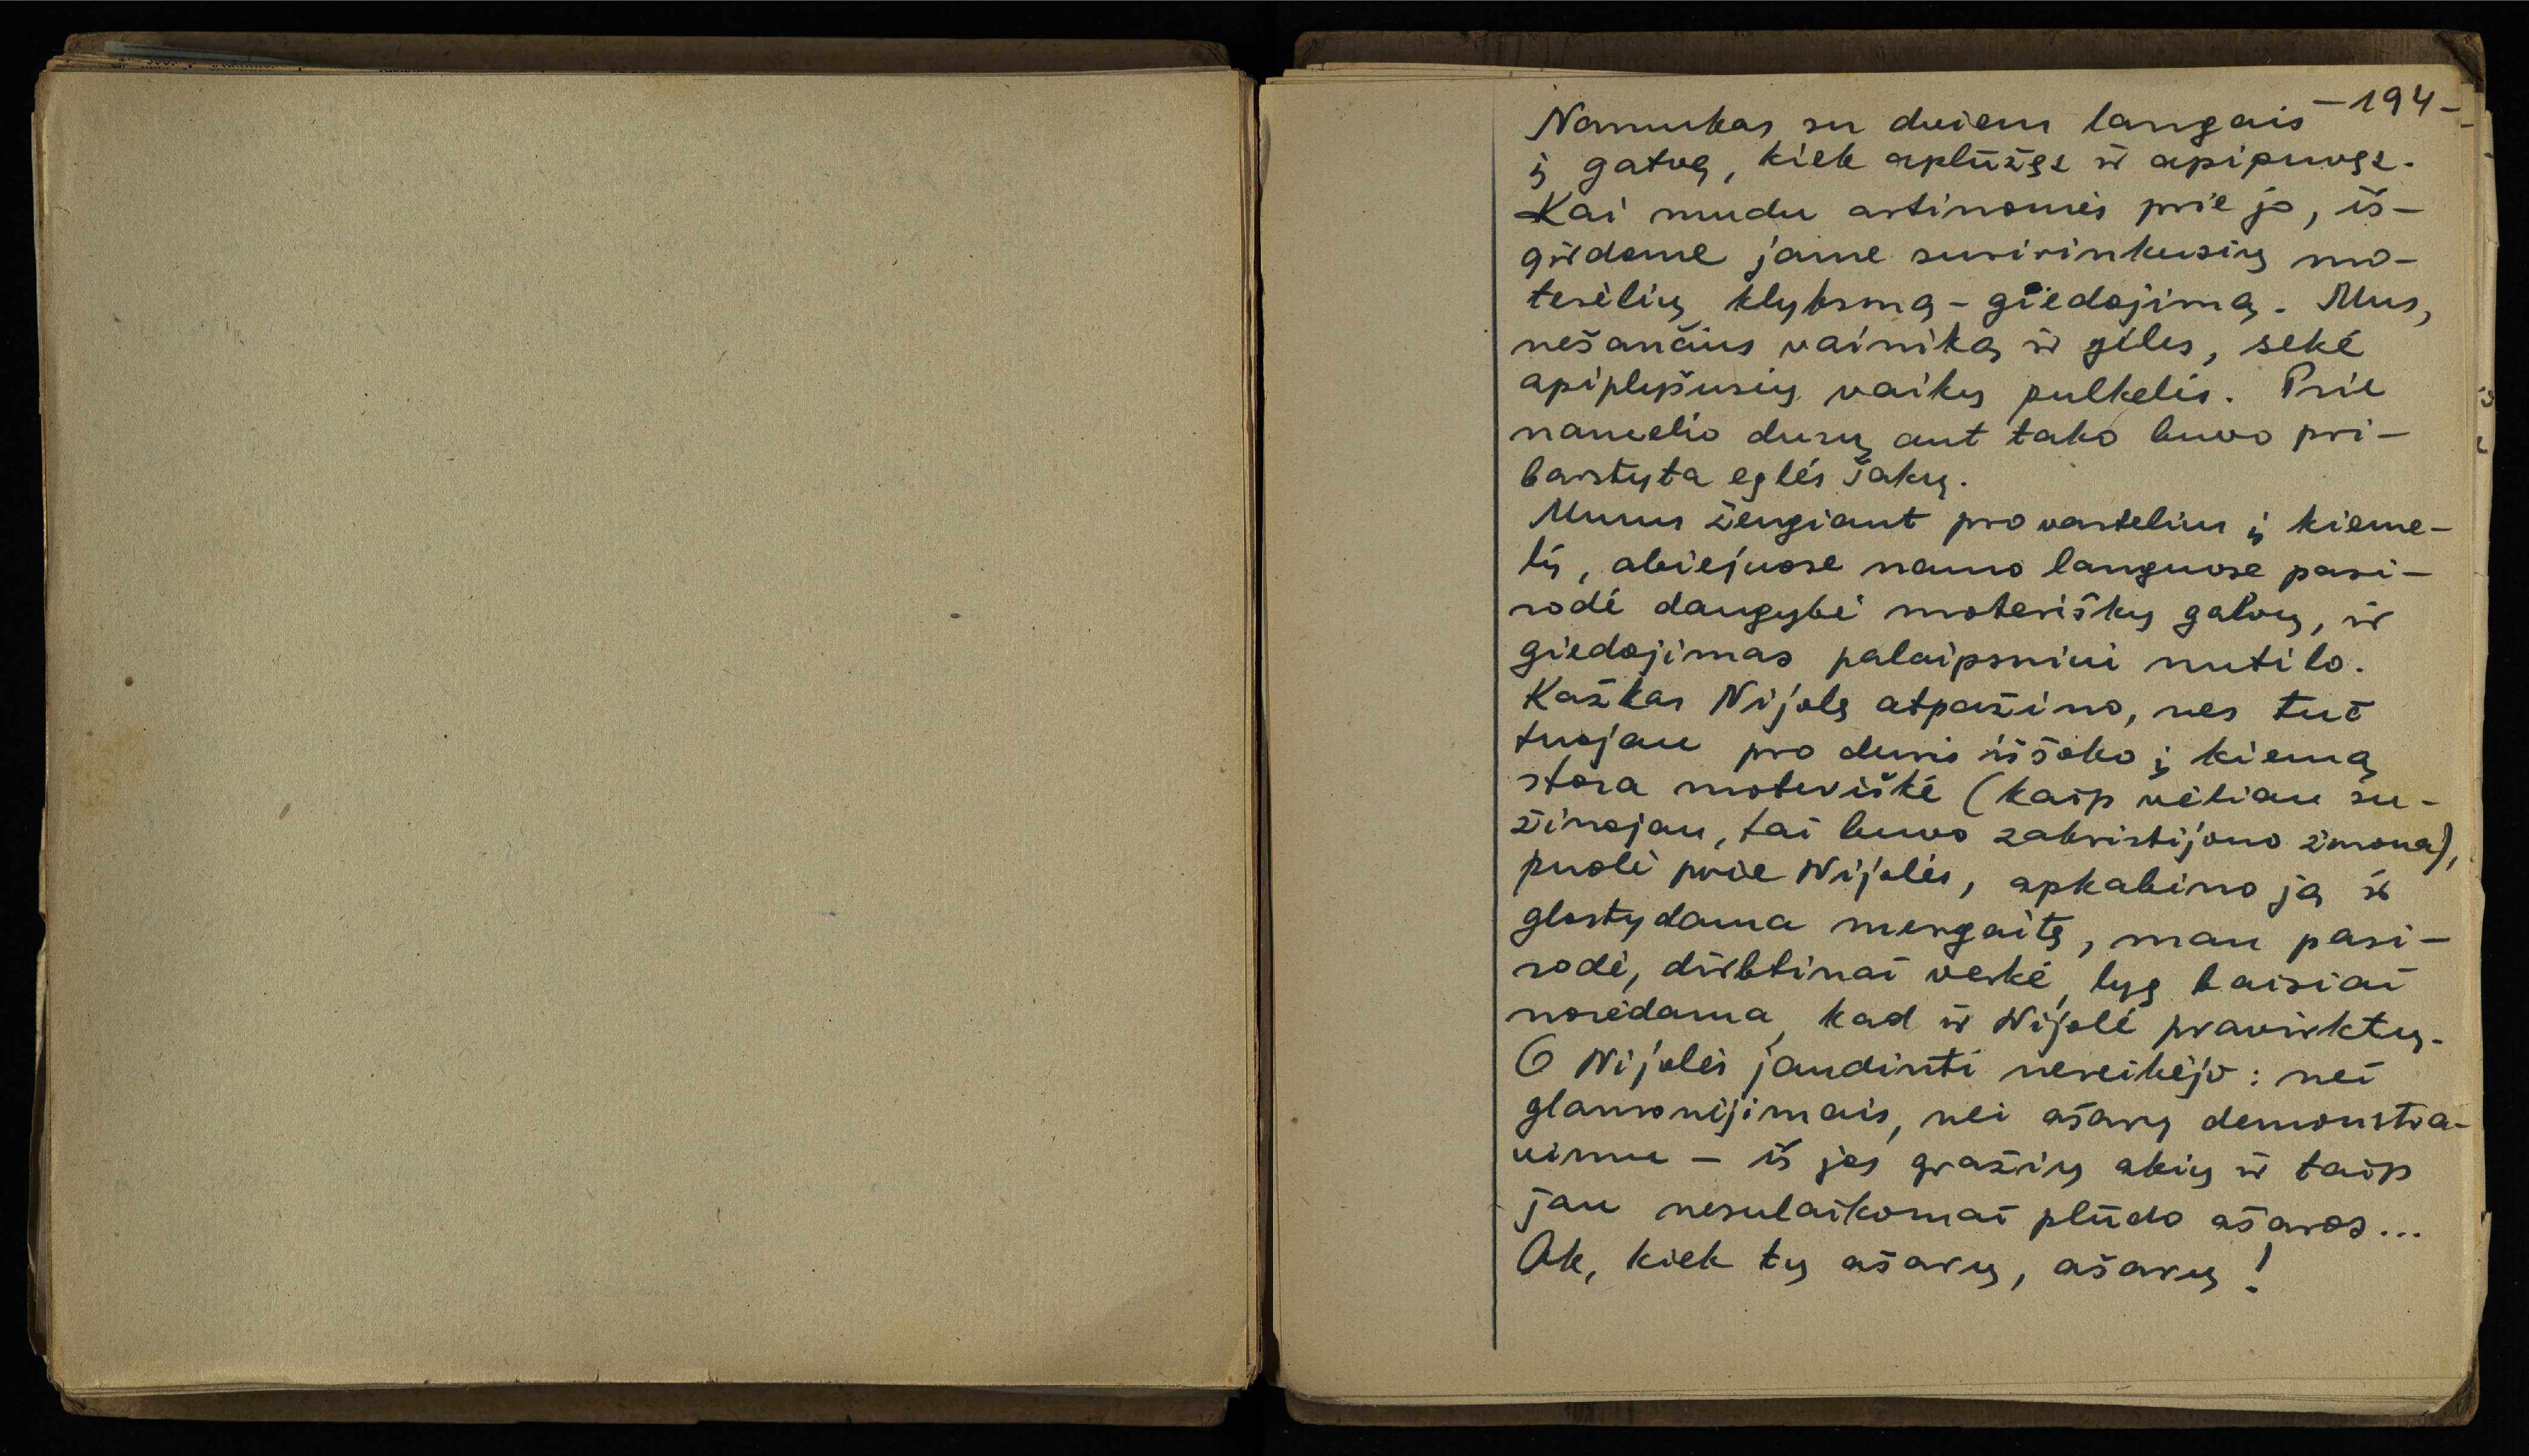 –194–
Namukas su dviem langais
į gatvę, kiek aplūžęs ir apipuvęs.
Kai mudu artinomės prie jo, iš-
girdome jame susirinkusių mo-
terėlių klyksmą-giedojimą. Mus,
nešančius vainiką ir gėles, sekė
apiplyšusių vaikų pulkelis. Prie
namelio durų ant tako buvo pri-
barstyta eglės šakų.
Mums žengiant pro vartelius į kieme-
lį, abiejuose namo languose pasi-
rodė daugybė moteriškų galvų, ir
giedojimas palaipsniui nutilo.
Kažkas Nijolę atpažino, nes tuč
tuojau pro duris iššoko į kiemą
stora moteriškė (kaip vėliau su-
žinojau, tai buvo zakristijono žmona),
puolė prie Nijolės, apkabino ją ir
glostydama mergaitę, man pasi-
rodė, dirbtinai verkė, lyg baisiai
norėdama, kad ir Nijolė pravirktų.
O Nijolės jaudinti nereikėjo: nei
glamonėjimais, nei ašarų demonstra-
vimu – iš jos gražių akių ir taip
jau nesulaikomai plūdo ašaros...
Ak, kiek tų ašarų, ašarų!